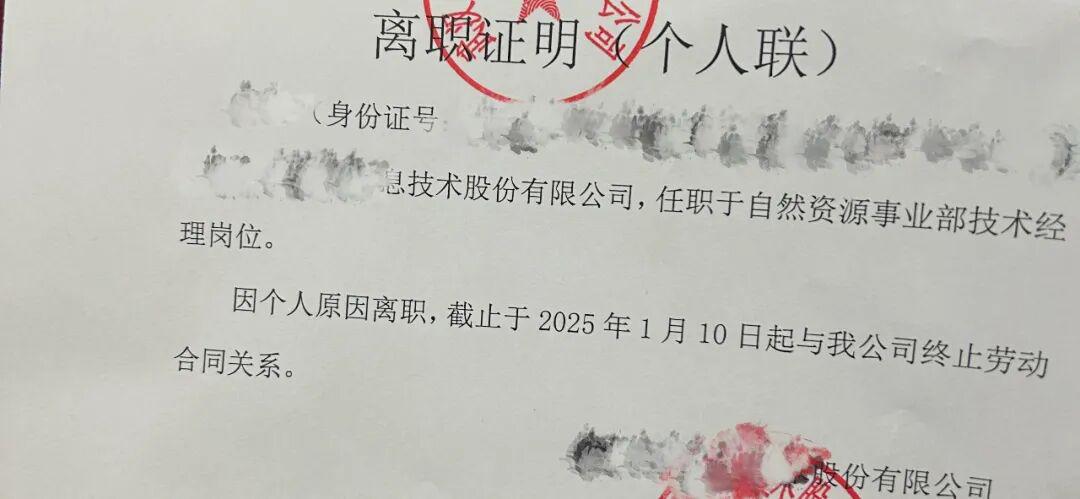 离职证明（个人联）
公司
（身份证号:
息技术股份有限公司，任职于自然资源事业部技术经
理岗位。
因个人原因离职，截止于 2025 年 1 月 10 日起与我公司终止劳动
合同关系。
股份有限公司